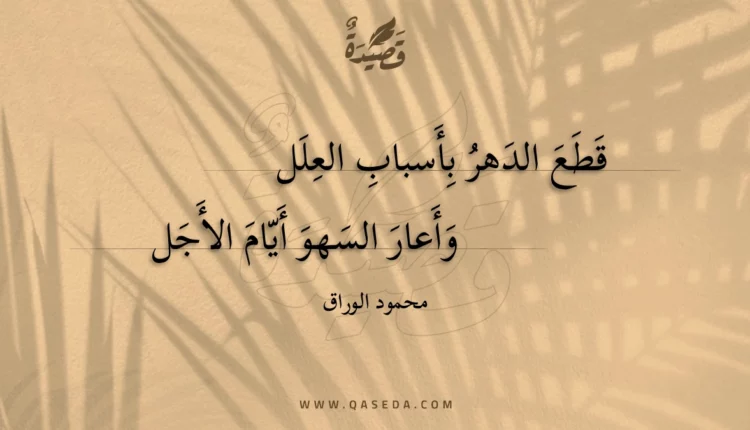 قَصِيْدَةٌ
قَطَعَ الدَهرُ بِأَسبابِ العِلَل
وَأَعارَ السَهوَ أَيّامَ الأَجَل
محمود الوراق
WWW.QASEDA.COM